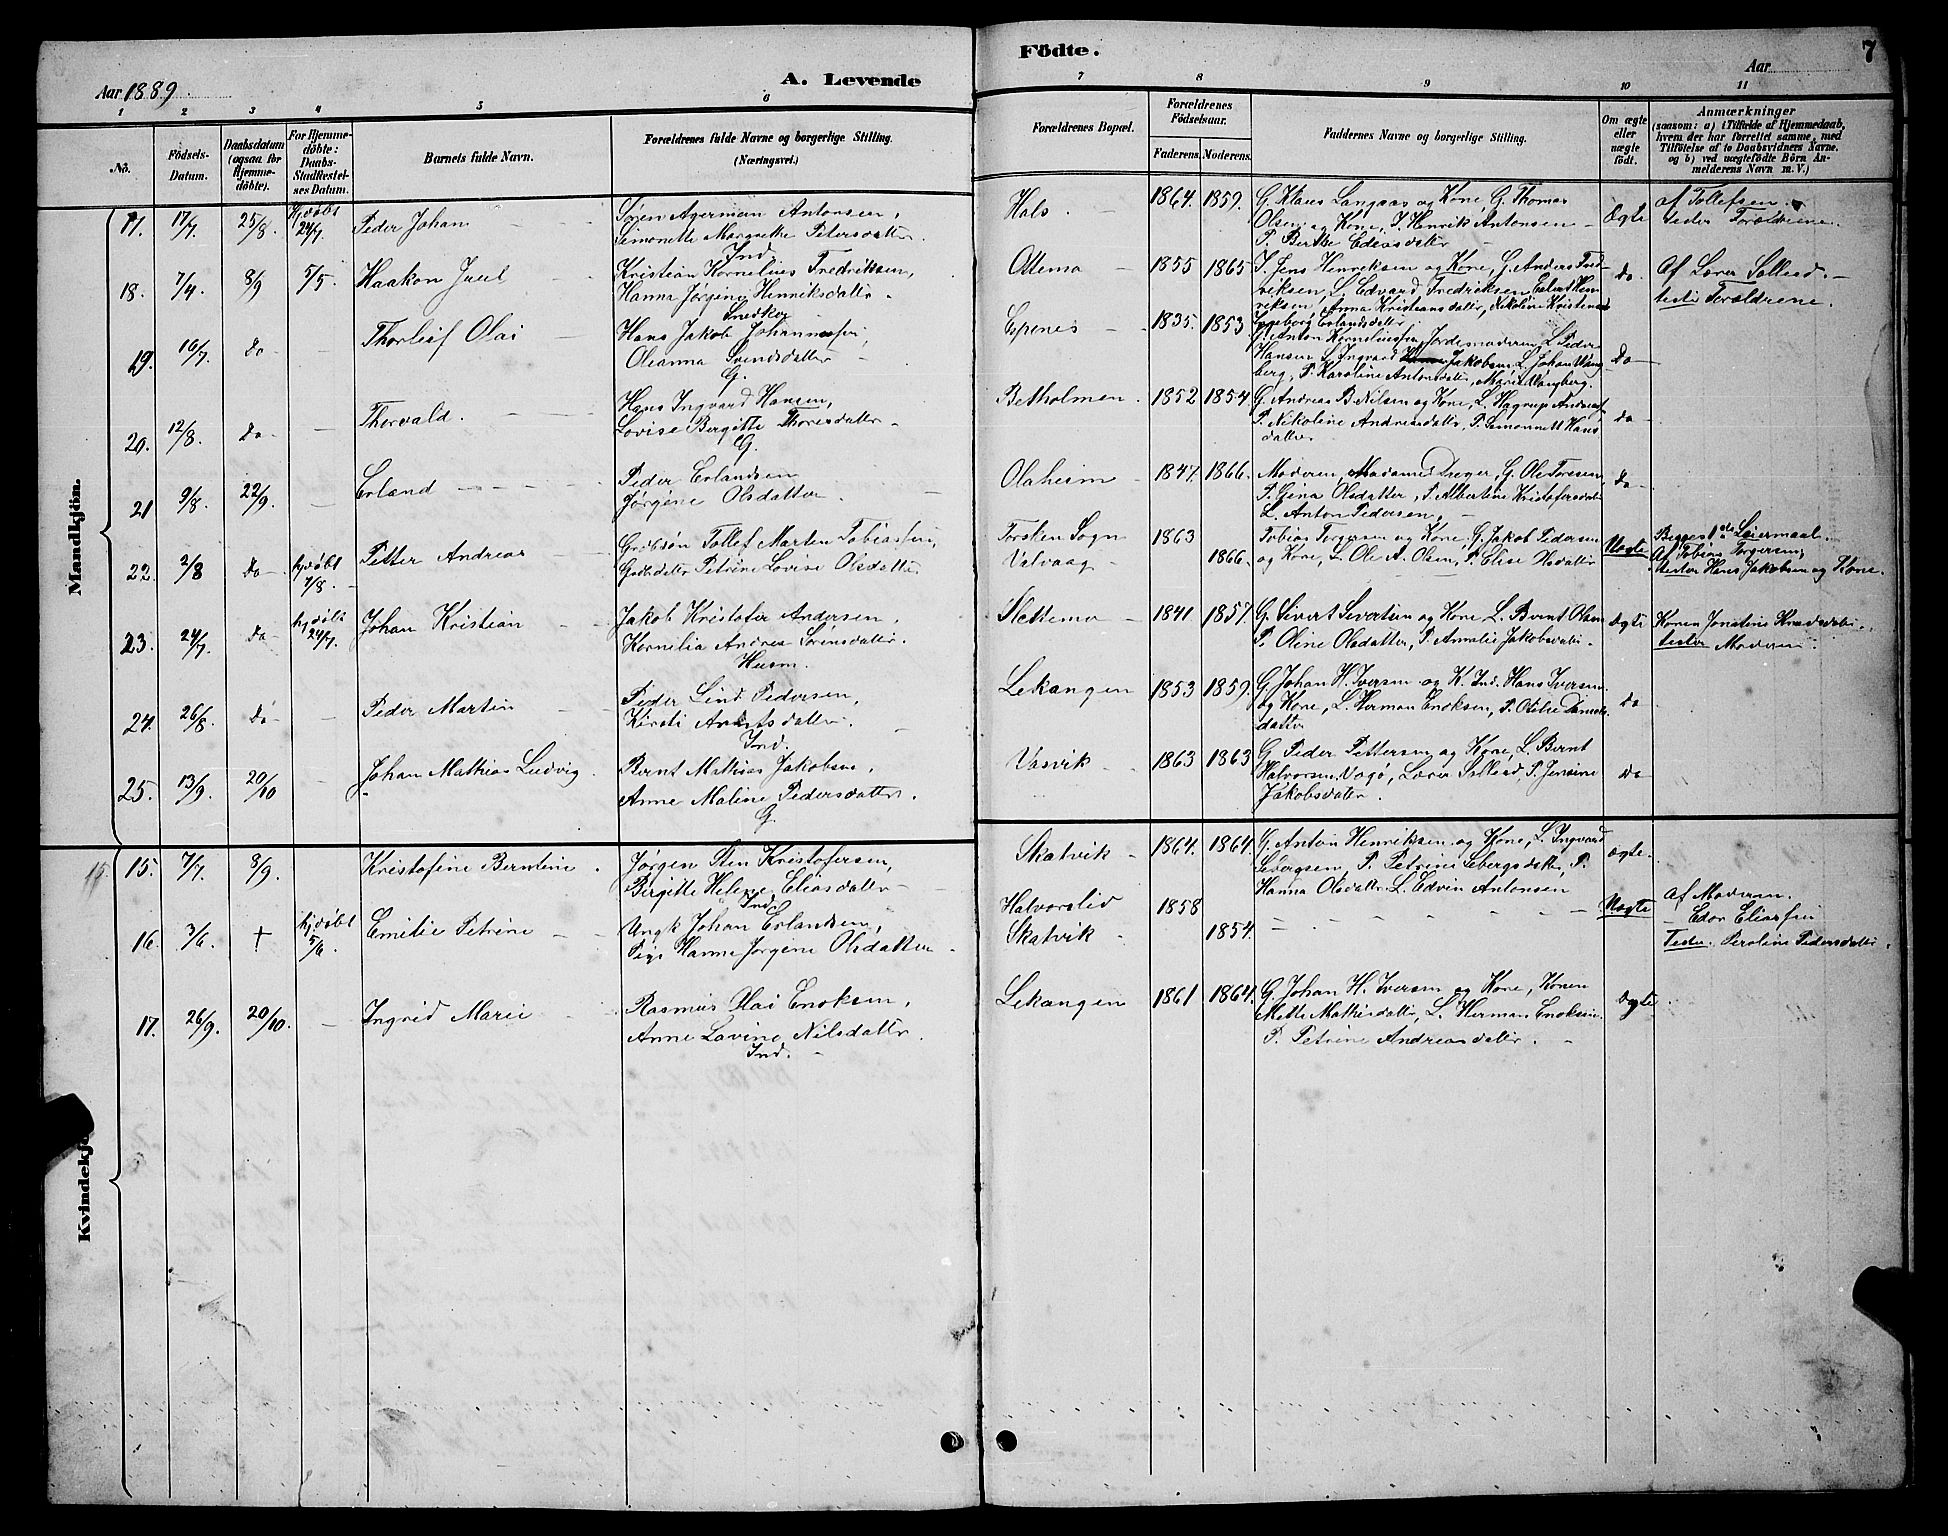 Aar 1889.
A. Levende
Födte.
Aar
7
1 2 3 4 5 6 7 8 9 10 11
No.
Födsels-Datum.
Daabsdatum (ogsaa for Hjemmedöbte).
For Hjemmedöbte: Daabs-Stadfæstelses Datum.
Barnets fulde Navn.
Forældrenes fulde Navne og borgerlige Stilling. (Næringsvei.)
Forældrenes Bopæl.
Forældrenes Födselsaar.
Faderens. Moderens.
Faddernes Navne og borgerlige Stilling.
Om ægte eller uægte födt.
Anmærkninger
(saasom: a) i Tilfælde af Hjemmedaab, hvem der har forrettet samme, med Tilföielse af to Daabsvidners Navne. og b) ved uægtefödte Börn Anmelderens Navn m. V.)
Mandkjön.
17. 17/7 25/8 hj.døbt 24/7 Peder Johan
Søren Agerman Antonsen,
Simonette Margrethe Petersdatter
Ind.
Hals. 1864. 1859.
G. Klaus Langaas og Kone, G. Thomas
Olsen og Kone, I. Henrik Antonsen
P. Berthe Edensdatter
Ægte
af Tollefsen.
testes Forældrene.
18. 7/4 8/9 5/5 Haakon Juul
Kristian Kornelius Fredriksen,
Hanna Jørgine Henriksdatter
Snedker
Ottemo 1855 1865
I. Jens Henriksen og Kone, G. Anders Fredriksen, L. Edvard Fredriksen, Edvart Henriksen, Anna Kristiansdatter, Nikoline Kristensd
Ingeborg Erlandsdatter
Do.
Af Lærer Solleed.
testes Forældrene.
19. 16/7. Do Thorleif Olai
Hans Jakob Johannesen,
Oleanna Svendsdatter
G.
Epenes 1835. 1853
G. Anton Korneliusen, Jordemoderen, L. Peder
Hansen, L. Ingvard Jakobsen, L. Johan Wangberg, P. Karoline Antonsdatter, Marie Wangberg.
Do
20. 12/8. Do Thorvald.
Hans Ingvard Hansen,
Lovise Bergitte Thoresdatter
G.
Betholmen. 1852 1854.
G. Andreas B. Nilsen og Kone, L. Hagrup Andreas
P. Nikoline Andreasdatter, P. Simonnett Hansdatter
do
21 9/8. 22/9. Erland
Peder Erlandsen
Jørgine Olsdatter.
Olaheim 1847. 1866.
Moderen, Madame Dreyer, G. Ole Toresen,
P. Gina Olsdatter, P. Albertine Kristofersdatter
L. Anton Pedersen,
do
22. 2/8 Do hj.døbt 7/8. Petter Andreas
Grdbsøn Tollef Marten Tobiassen,
Grdbsdatter Petrine Lovise Olsdatter
Torsken Sogn 1863
Valvaag 1866.
Tobias Torgersen og Kone, G. Jakob Pedersen
og Kone, L. Ole A. Olsen, P. Elise Olsdatter
Uægte
Begges 1ste Leiermaal.
Af Tobias Torgersen,
testes Hans Jakobsen og Kone.
23. 24/7. do hj.døbt 24/7. Johan Kristian
Jakob Kristofer Andersen,
Kornelia Andrea Sørensdatter.
Husm.
Slettemo 1841 1857.
G. Sivert Sivertsen og Kone, L. Bernt Olsen
P. Oline Olsdatter, P. Amalie Jakobsdatter.
Ægte
Konen Jonetine Knudsdatter.
testes Moderen.
24. 26/8. Do Peder Martin
Peder Lind Pedersen,
Kirsti Arntsdatter.
Ind.
Lekangen 1853 1859.
G. Johan H. Iversen og K. Ind. Hans Iversen
og Kone, L. Herman Enoksen, P. Otilie Danielsdatter
Do
25. 13/9. 20/10 Johan Mathias Ludvig.
Bernt Mathias Jakobsen,
Anne Maline Pedersdatter.
G.
Vasvik 1863 1863
G. Peder Pettersen og Kone, L. Bernt
Halvorsen Vagø, Lærer Solleed, P. Jensine
Jakobsdatter.
Do
Kvindekjö
15. 7/7. 8/9. Kristofine Berntine.
Jørgen Stin Kristofersen,
Birgitte Helene Eliasdatter
Ind.
Skatvik 1864. 1864.
G. Anton Henriksen og Kone, L. Ingvard
Sebergsen, P. Petrine Sebergsdatter, P.
Hanna Olsdatter, L. Edvin Antonsen
Ægte.
16. 3/6. + hj.døbt 5/6 Emilie Petrine
Ungk Johan Erlandsen,
Pige Hanne Jørgine Olsdatter
Halvorslid 1858
Skatvik 1854.
Uægte
Af Moderen.
Edor Eliassen
Testes. Peroline Pedersdatter.
17. 26/9. 20/10. Ingrid Marie
Rasmus Olai Enoksen,
Anne Lovine Nilsdatter.
Ind.
Lekangen 1861 1864.
G. Johan H. Iversen og Kone, Konen
Mette Mathisdatter, L. Herman Enoksen
P. Petrine Andreasdatter.
Ægte